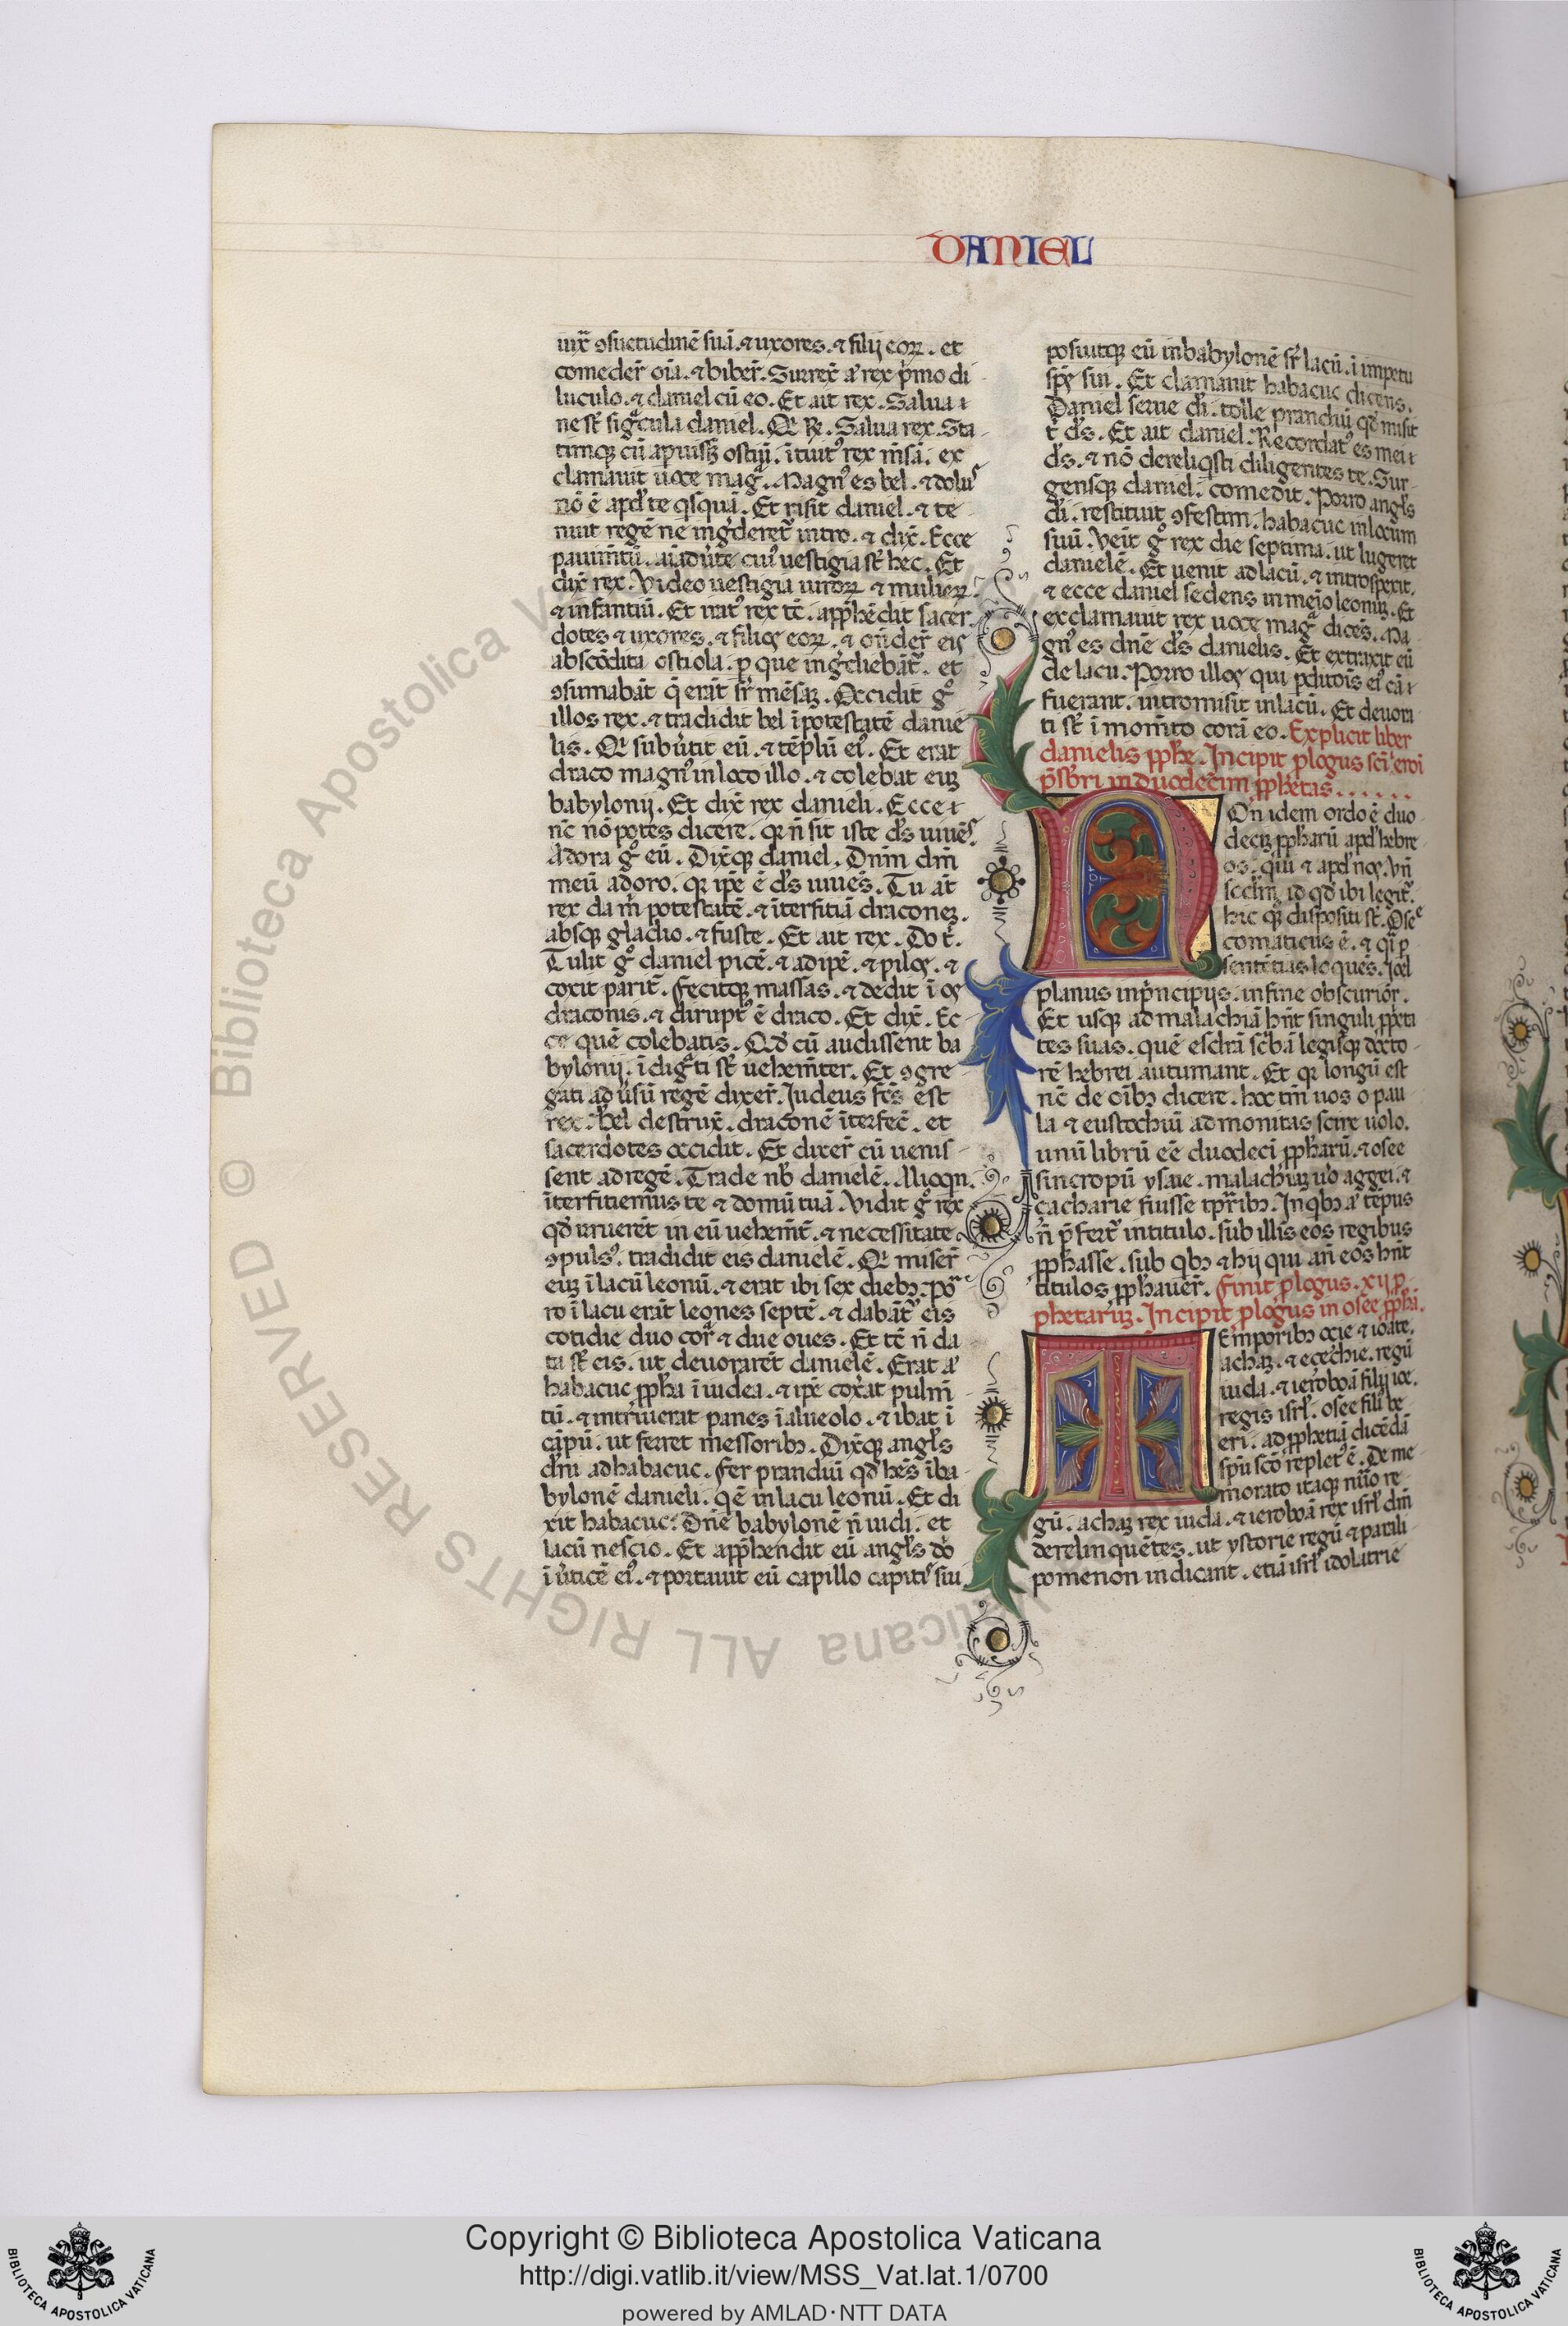 DANIEL
iux̄ ꝯsuetudinē suā. ⁊ uxores. ⁊ filij eoꝝ. et
comeder̄ oīa. ⁊ biber̄. Surrex̄ a' rex p̄mo di
luculo. ⁊ daniel cū eo. Et ait rex. Salua ı
ne st̄ sigͣcula daniel. Qͥ Rͤ. Salua rex. Sta
timqꝫ cū aꝑuissꝫ ostiū. ītuitꝰ rex m̄sā. ex
clamauit uoce magͣ. Magnꝰ es bel. ⁊ dolus
nō ē apd' te qͥsquā. Et risit daniel. ⁊ te
nuit regē ne ingͣderet̄ intro. ⁊ dix̄. Ecce
pauim̄tū. aīaduerte cuiꝰ uestigia st̄ hec. Et
dix̄ rex. Video uestigia uiroꝝ ⁊ mulieꝝ.
⁊ infantiū. Et iratꝰ rex tc̄. app̄hēdit sacer
dotes ⁊ uxores. ⁊ filios eoꝝ. ⁊ oñder̄ eis
abscōdita ostiola. ꝑ que ingͣdiebāt̄. et
ꝯsumabāt q̄ erāt sr̄ mēsaꝫ. Occidit gͦ
illos rex. ⁊ tradidit bel ī potestatē danie
lis. Qͥ subūtit eū. ⁊ tēplū eiꝰ. Et erat
draco magnꝰ in loco illo. ⁊ colebāt eūꝫ
babylonij. Et dix̄ rex danieli. Ecce ı
nc̄ nō potes dicere. qͥ n̄ sit iste ds̄ uiuēs.
Adora gͦ eū. Dix̄qꝫ daniel. Dnm̄ dm̄
meū adoro. qͥ ip̄e ē ds̄ uiuēs. Tu āt
rex da m̄ potestatē. ⁊ īterfitiā draconeꝫ.
absqꝫ gladio. ⁊ fuste. Et ait rex. Do t̄.
Tulit gͦ daniel picē. ⁊ adipē. ⁊ pilos. ⁊
coxit parit̄. fecitqꝫ massas. ⁊ dedit ī os
draconis. ⁊ diruptꝰ ē draco. Et dix̄. Ec
ce quē colebatis. Qd' cū audissent ba
bylonij. ī digͣti st̄ uehem̄ter. Et ꝯgre
gati aduersū regē dixer̄. Judeus fc̄s est
rex. bel destrux̄. draconē īterfec̄. et
sacerdotes occidit. Et dixer̄ cū uenis
sent ad regē. Trade nb̄ danielē. Alioqn̄.
īterfitiemus te ⁊ domū tuā. Vidit gͦ rex
qd' irruerēt in eū uehem̄t̄. ⁊ necessitate
ꝯpulsꝰ. tradidit eis danielē. Qͥ miser̄
eūꝫ ī lacū leonū. ⁊ erat ibi sex diebꝫ. Poͬ
ro ī lacu erāt leones septē. ⁊ dabāt̄ eis
cotidie duo corꝑa ⁊ due oues. Et tc̄ n̄ da
ta st̄ eis. ut deuorarēt danielē. Erat a'
habacuc ꝓpha ī iudea. ⁊ ip̄e cox̄at pulm̄
tū. ⁊ intriuerat panes ī alueolo. ⁊ ibat ī
cāpū. ut ferret messoribꝫ. Dix̄qꝫ angl̄s
dn̄i ad habacuc. fer prandiū qd' hēs ī ba
bylonē danieli. qͥ ē in lacu leonū. Et di
xit habacuc. Dn̄e babylonē n̄ uidi. et
lacū nescio. Et app̄hendit eū angl̄s dō
ī uerticē eiꝰ. ⁊ portauit eū capillo capitis sui
posuitqꝫ eū in babylonē sr̄ lacū. ī impetu
sp̄s sui. Et clamauit habacuc dicens.
Daniel serue di'. tolle prandiū qd' misit
t̄ ds̄. Et ait daniel. Recordatꝰ es mei ı
ds̄. ⁊ nō dereliqͥsti diligentes te. Sur
gensqꝫ daniel. comedit. Porro angl̄s
di'. restituit ꝯfestim. habacuc in locum
suū. Veīt gͦ rex die septima. ut lugeret
danielē. Et uenit ad lacū. ⁊ introspexit.
⁊ ecce daniel sedens in mejo leonuꝫ. Et
exclamauit rex uoce magͣ dicēs. Ma
gnꝰ es dn̄e ds̄ danielis. Et extraxit eū
de lacu. Porro illos qui ꝑditōis eiꝰ cā ı
fuerant. intromisit in lacū. Et deuora
ti st̄ ī mom̄to corā eo. Explicit liber
danielis ꝓphe. Incipit ꝓlogus sc̄i ieroī
p̄sbr̄i in duodecim ꝓphetas......
NOn idem ordo ē duo
deciꝫ ꝓpharū apd' hebre
os. qui ⁊ apd' nos. Vn̄
scd̄m id qd' ibi legit̄.
hic qͦꝫ dispositi st̄. Osee
comaticus ē. ⁊ qͣi ꝑ
sentētias loquēs. Joel
planus in p̄ncipijs. in fine obscurior̄.
Et usqꝫ ad malachiā hn̄t singuli ꝓprieta
tes suas. quē esdrā scͥbā legisqꝫ docto
rē hebrei autumant. Et qͥ longū est
nc̄ de oībꝫ dicere. hoc tm̄ uos o pau
la ⁊ eustochiū admonitas scire uolo.
unū librū eē duodecī ꝓpharū. ⁊ osee
sincronū ysaie. malachiaꝫ uō aggei. ⁊
çacharie fuisse tp̄ribꝫ. In qͥbꝫ a' tēpus
n̄ p̄fert̄ in titulo. sub illis eos regibus
ꝓphasse. sub qͥbꝫ ⁊ hij qui an̄ eos hn̄t
titulos ꝓphauer̄. Finit ꝓlogus. xij ꝓ
phetaruꝫ. Incipit ꝓlogus in oseē ꝓphā.
TEmporibꝫ oçie ⁊ ioate.
achaꝫ. ⁊ eçechie. regū
iuda. ⁊ ieroboā filij ioe.
regis isrl̄. osee filī be
eri. ad ꝓphetiā dicēdā
sp̄u scō repletꝰ ē. De me
morato itaqꝫ nūo re
gū. achaꝫ rex iuda. ⁊ ieroboā rex isrl̄ dm̄
derelinquētes. ut ystorie regū ⁊ parali
pomenon indicant. etiā isrl̄ idolatrie
Copyright © Biblioteca Apostolica Vaticana
http://digi.vatlib.it/view/MSS_Vat.lat.1/0700
powered by AMLAD·NTT DATA
BIBLIOTECA APOSTOLICA VATICANA
BIBLIOTECA APOSTOLICA VATICANA
© Biblioteca Apostolica Vaticana ALL RIGHTS RESERVED